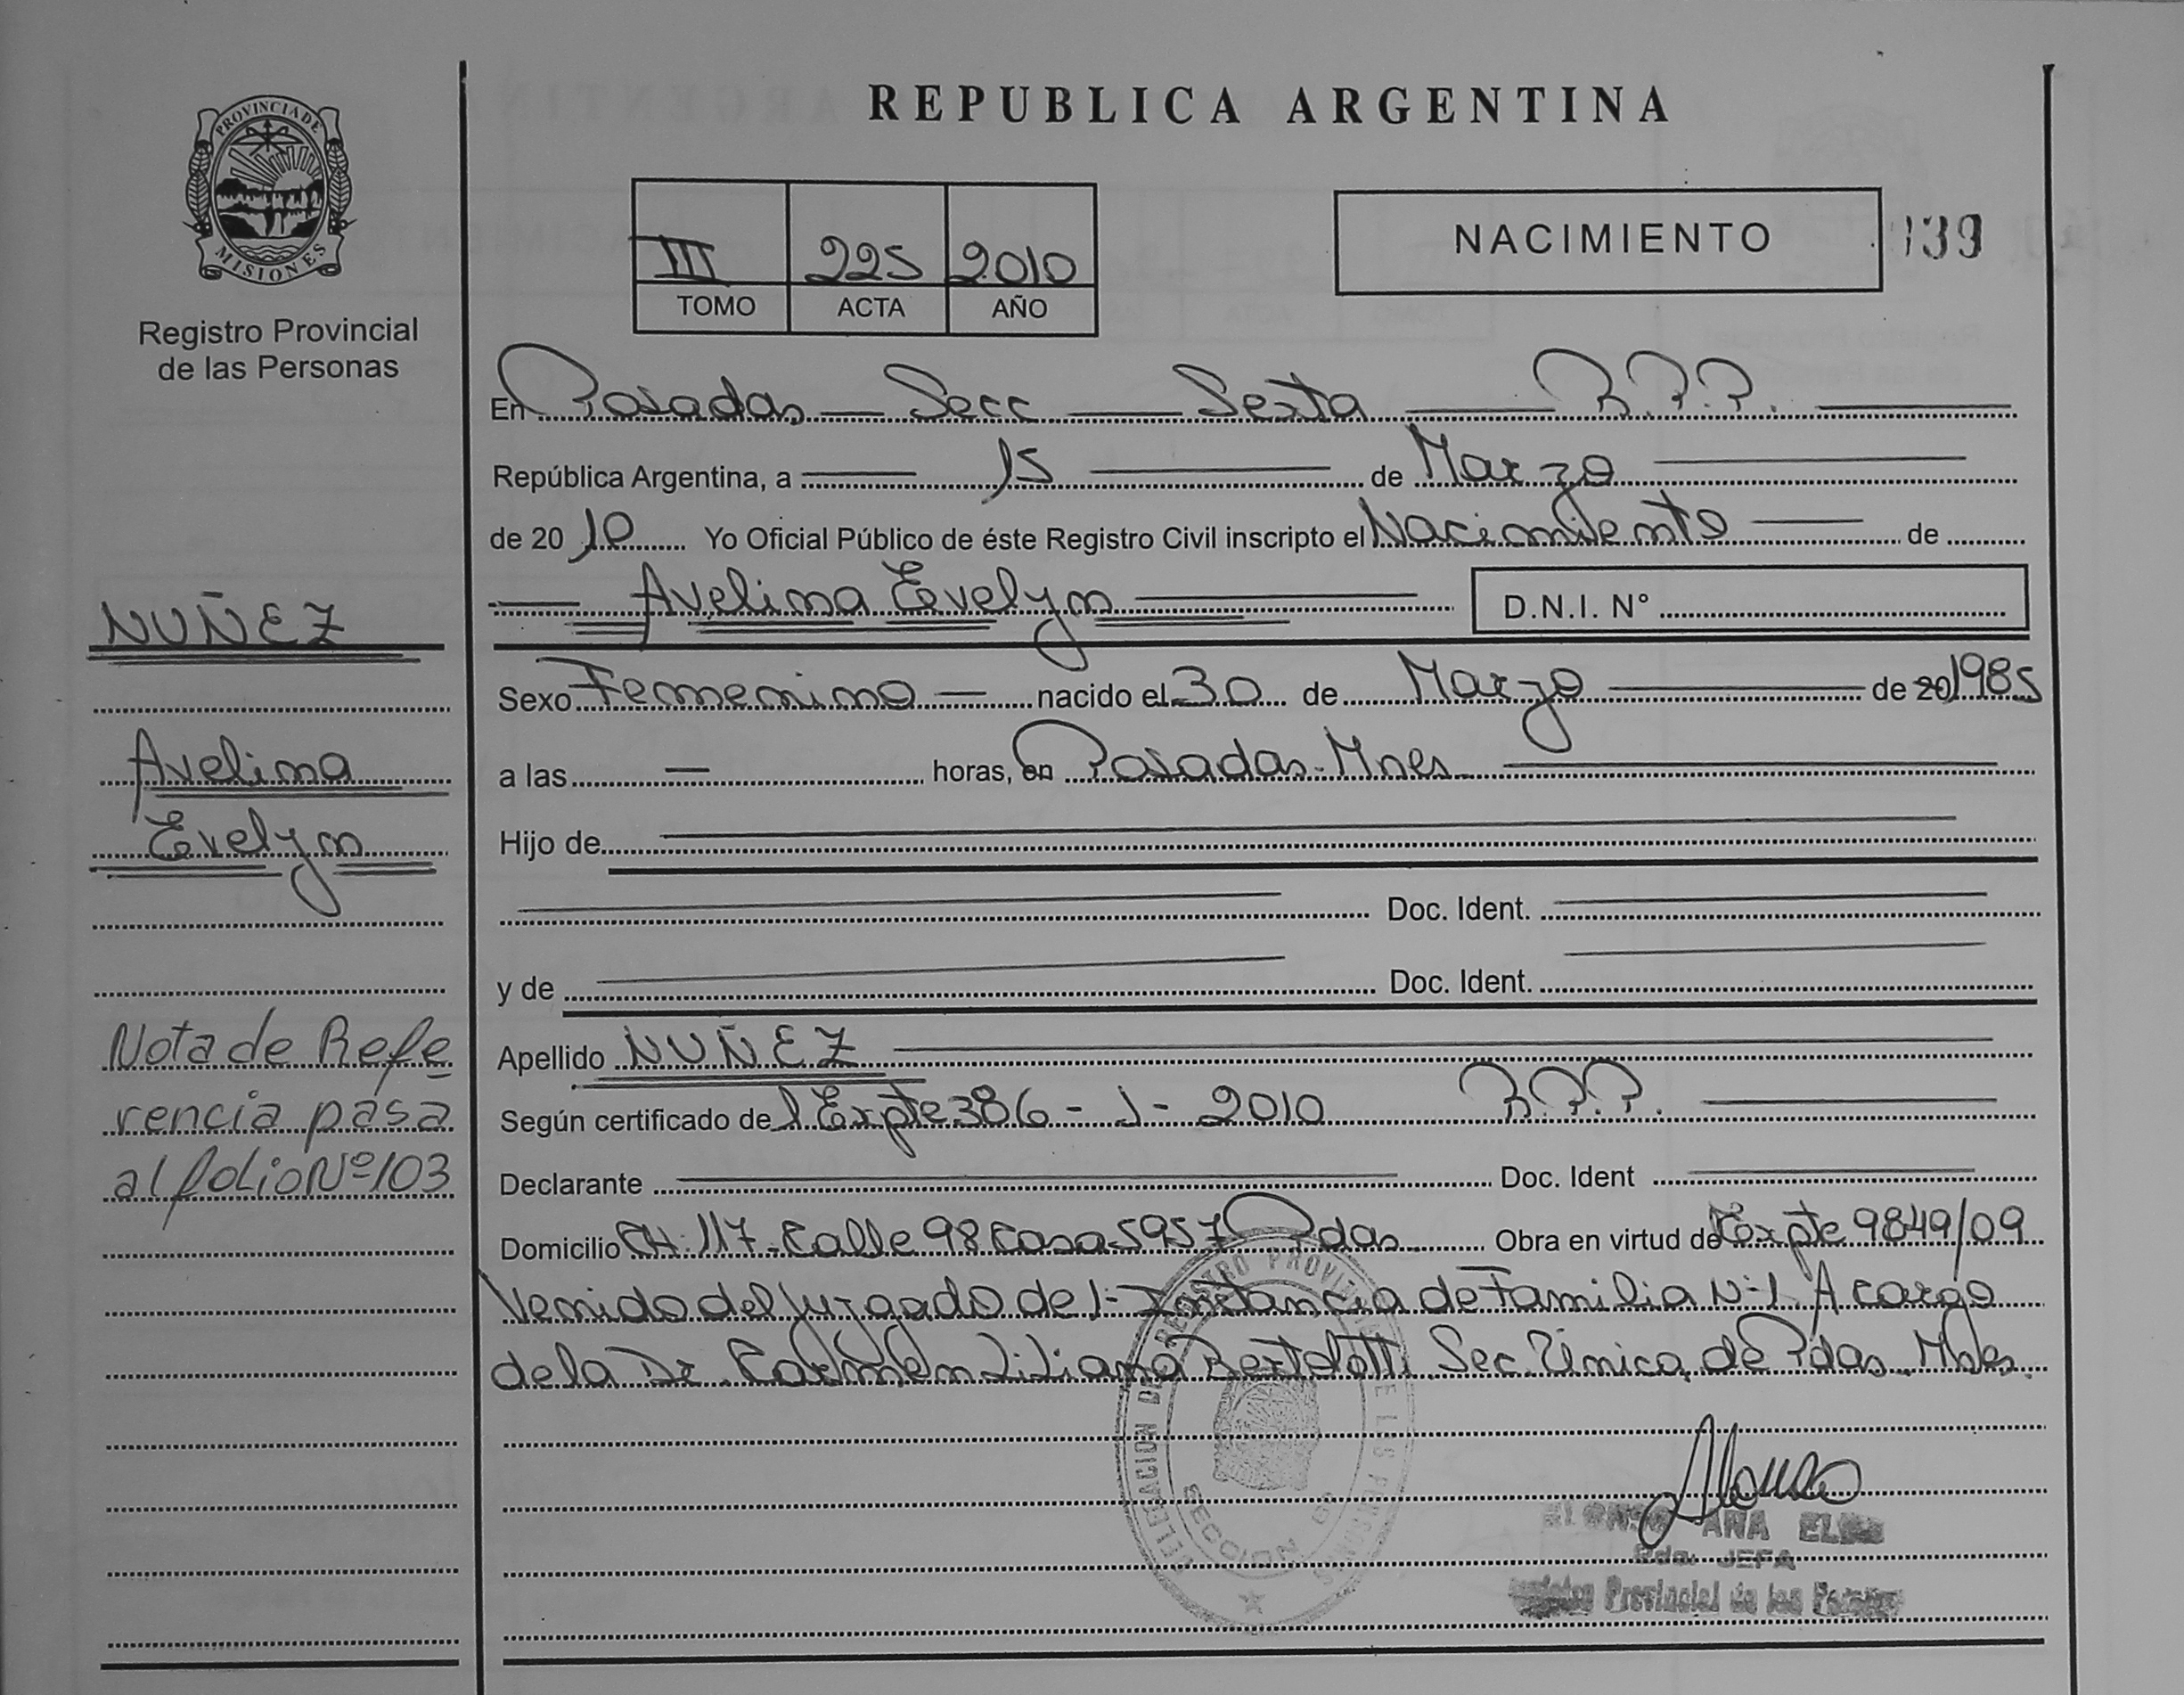 PROVINCIA DE
MISIONES
Registro Provincial
de las Personas
REPUBLICA ARGENTINA
III 225 2010
TOMO ACTA AÑO
NACIMIENTO
139
En Posadas — Secc — Sexta — R.P.P. —
República Argentina, a — 15 — de Marzo —
de 2010 Yo Oficial Público de éste Registro Civil inscripto el Nacimiento — de
— Avelina Evelyn —
D.N.I. N°
NUÑEZ
Avelina
Evelyn
Sexo Femenino — nacido el 30 de Marzo — de 20 1985
a las — horas, en Posadas - Mnes —
Hijo de —
— Doc. Ident. —
y de — Doc. Ident. —
Apellido NUÑEZ —
Según certificado del Expte 386 - 1 - 2010 R.P.P. —
Declarante — Doc. Ident —
Domicilio CH. 117 - Calle 98 Casa 5957 Pdas Obra en virtud de Expte 9849/09
Venido del Juzgado de 1- Instancia de Familia N-1. A cargo
de la Dr. Carmen Liliana Bertolotti Sec. Unica de Pdas. Mnes.
Nota de Refe
rencia pasa
al folio Nº 103
Alonso
ALONSO ANA
JEFA
Provincial de las
SECCION